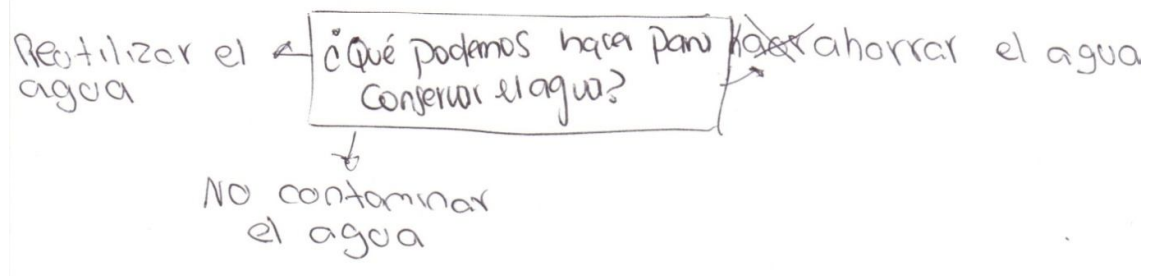 Reutilizar el
agua
¿Qué podemos hacer para
conservar el agua?
ahorrar el agua
No contaminar
el agua